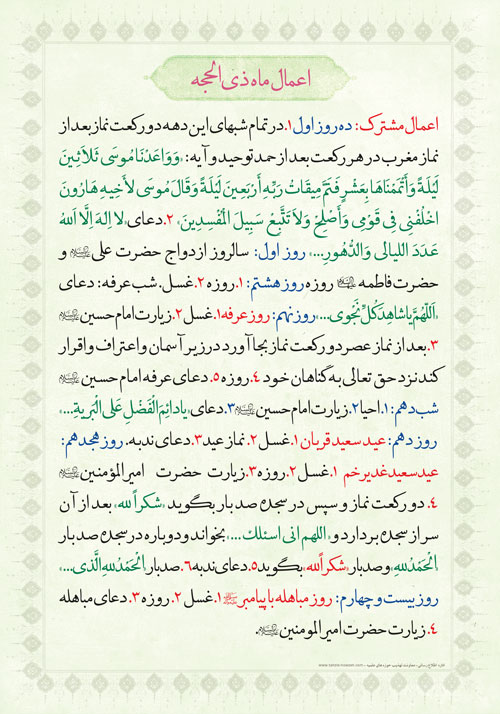 اعمال ماه ذی الحجه
اعمال مشترک: ده روز اول ۱. در تمام شبهای این دهه دو رکعت نماز بعد از
نماز مغرب در هر رکعت بعد از حمد توحید و آیه: «وَوَاعَدْنَا مُوسَى ثَلاَثِينَ
لَيْلَةً وَأَتْمَمْنَاهَا بِعَشْرٍ فَتَمَّ مِيقَاتُ رَبِّهِ أَرْبَعِينَ لَيْلَةً وَقَالَ مُوسَى لأَخِيهِ هَارُونَ
اخْلُفْنِي فِي قَوْمِي وَأَصْلِحْ وَلاَ تَتَّبِعْ سَبِيلَ الْمُفْسِدِينَ» ۲. دعای «لا اِلهَ اِلاَّ اللهُ
عَدَدَ اللیالی وَالدُّهُورِ...» روز اول: سالروز ازدواج حضرت علی علیه السلام و
حضرت فاطمه روزه روز هشتم: ۱. روزه ۲. غسل. شب عرفه: دعای
«اَللّهُمَّ یا شاهِدَ کُلِّ نَجْوی...» روز نهم: روز عرفه ۱. غسل ۲. زیارت امام حسین علیه السلام
۳. بعد از نماز عصر دو رکعت نماز بجا آورد در زیر آسمان و اعتراف و اقرار
کند نزد حق تعالی به گناهان خود ۴. روزه ۵. دعای عرفه امام حسین علیه السلام
شب دهم: ۱. احیا ۲. زیارت امام حسین علیه السلام ۳. دعای «یا دائِمَ الْفَضْلِ عَلَی الْبَرِیَّةِ...»
روز دهم: عید سعید قربان ۱. غسل ۲. نماز عید ۳. دعای ندبه. روز هجدهم:
عید سعید غدیر خم ۱. غسل ۲. روزه ۳. زیارت حضرت امیرالمؤمنین علیه السلام
۴. دو رکعت نماز و سپس در سجده صد بار بگوید «شکراً لله» بعد از آن
سر از سجده بردارد و «اللهم انی اسئلك...» بخواند و دوباره در سجده صد بار
«اَلْحَمْدُ للهِ» و صد بار «شکراً لله» بگوید ۵. دعای ندبه ۶. صد بار «اَلْحَمْدُ للهِ الَّذی...»
روز بیست و چهارم: روز مباهله با پیامبر ۱. غسل ۲. روزه ۳. دعای مباهله
۴. زیارت حضرت امیر المومنین علیه السلام.